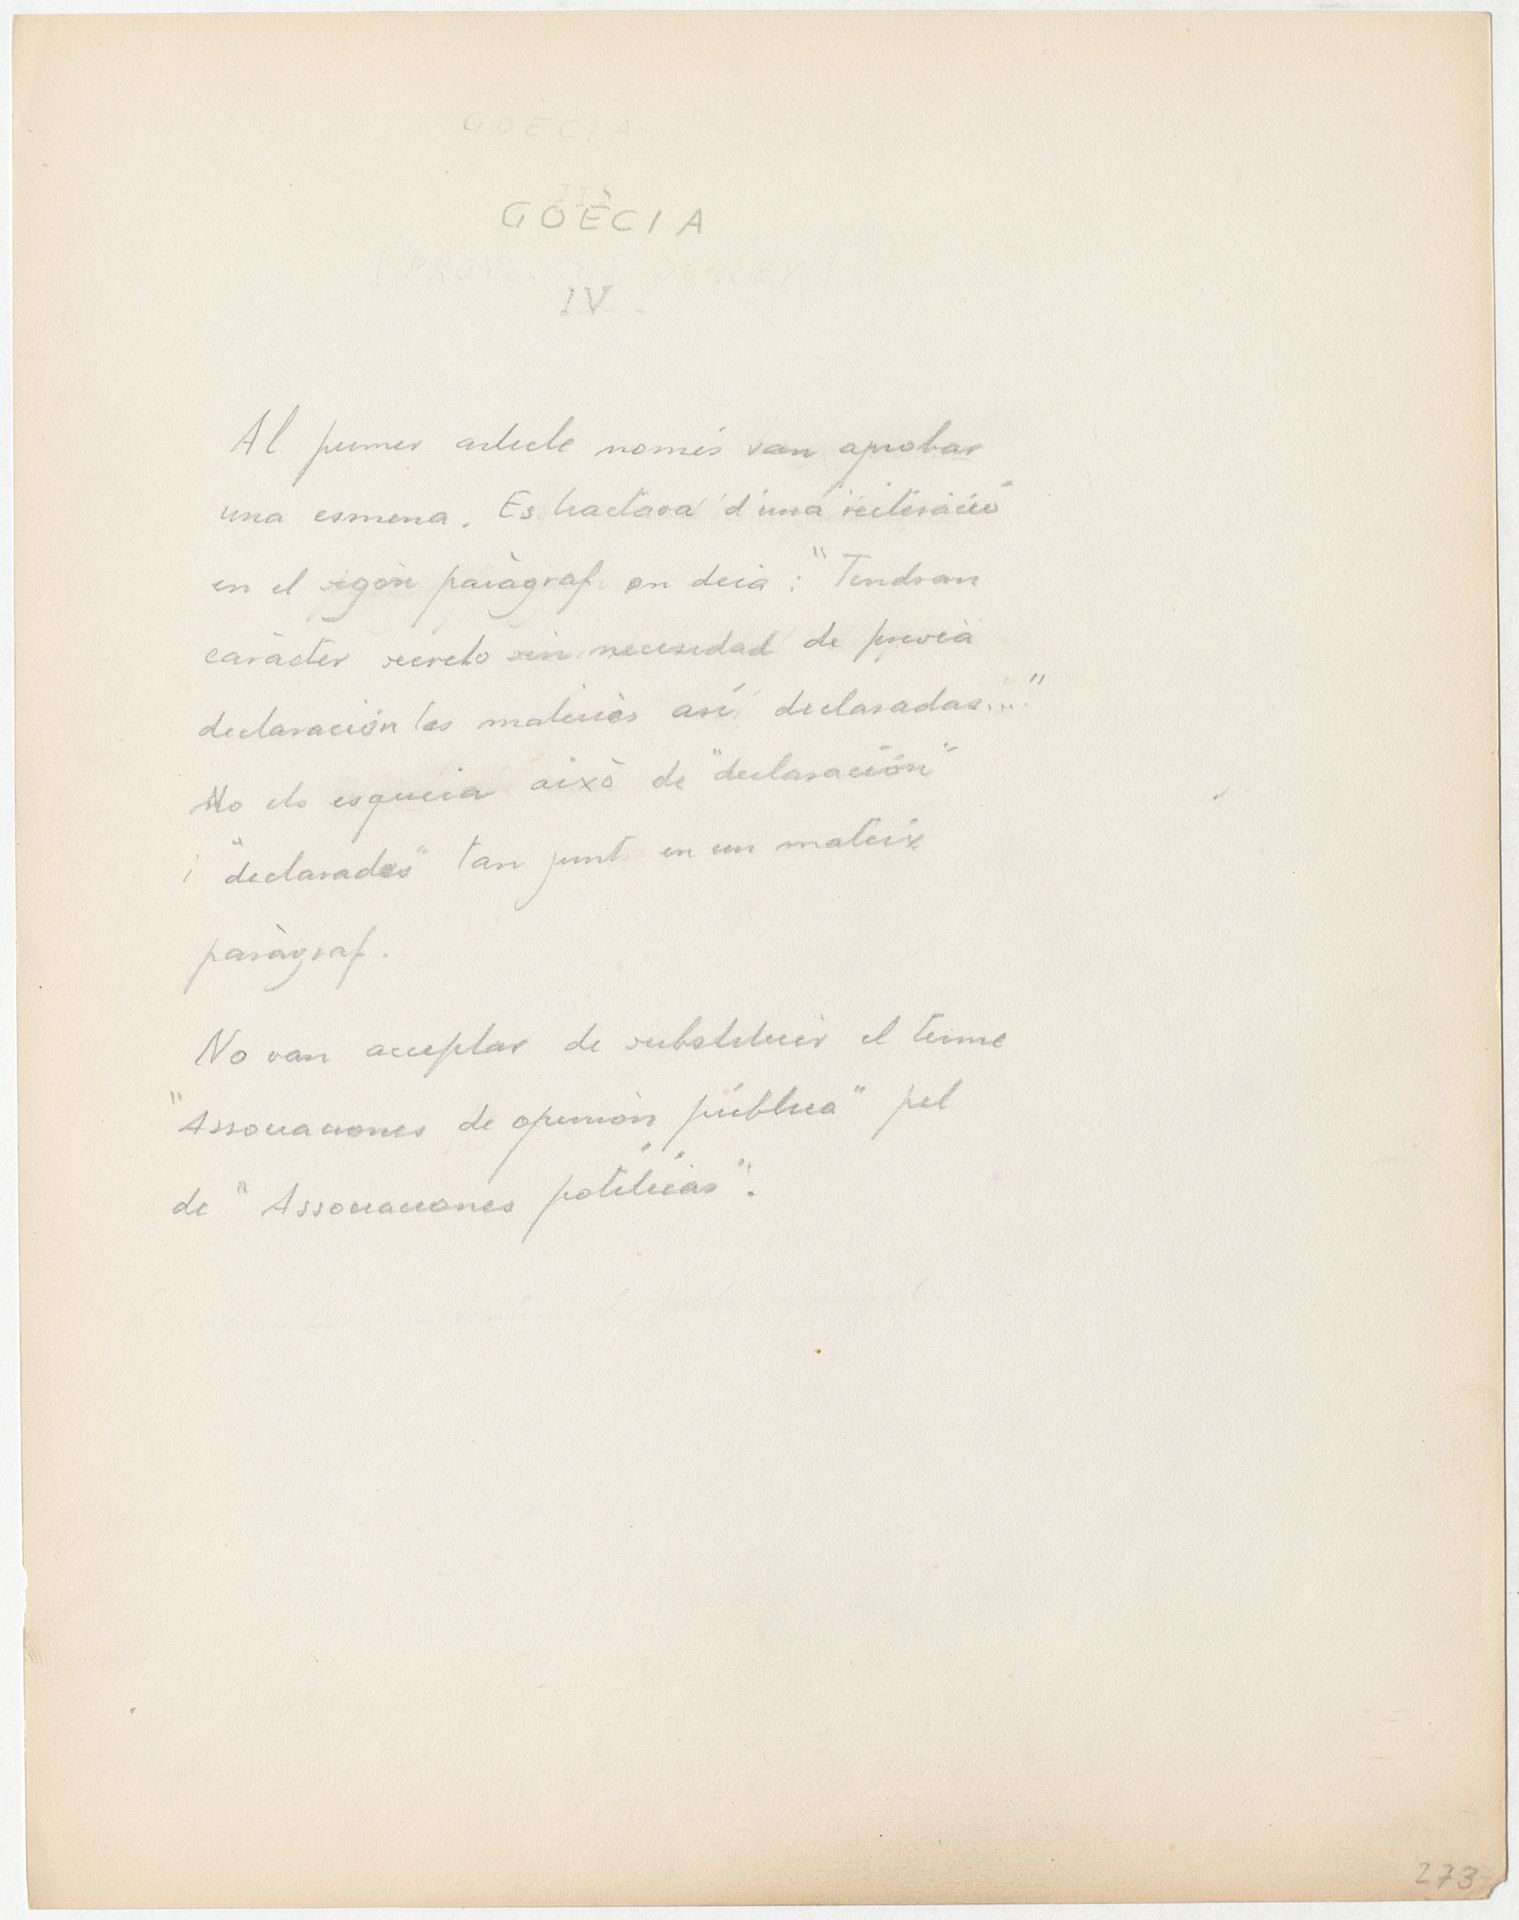 GOÈCIA
GOÈCIA
IV
Al primer article només van aprobar
una esmena. Es tractava d'una reiteració
en el segón paràgraf on deia: "Tendran
caràcter secreto sin necesidad de previa
declaración las materias así declaradas...."
No els esqueia aixó de "declaración"
i "declarades" tan junt en un mateix
paràgraf.
No van acceptar de substituir el terme
"Assouaciones de opinión pública" pel
de "Assouaciones políticas".
273